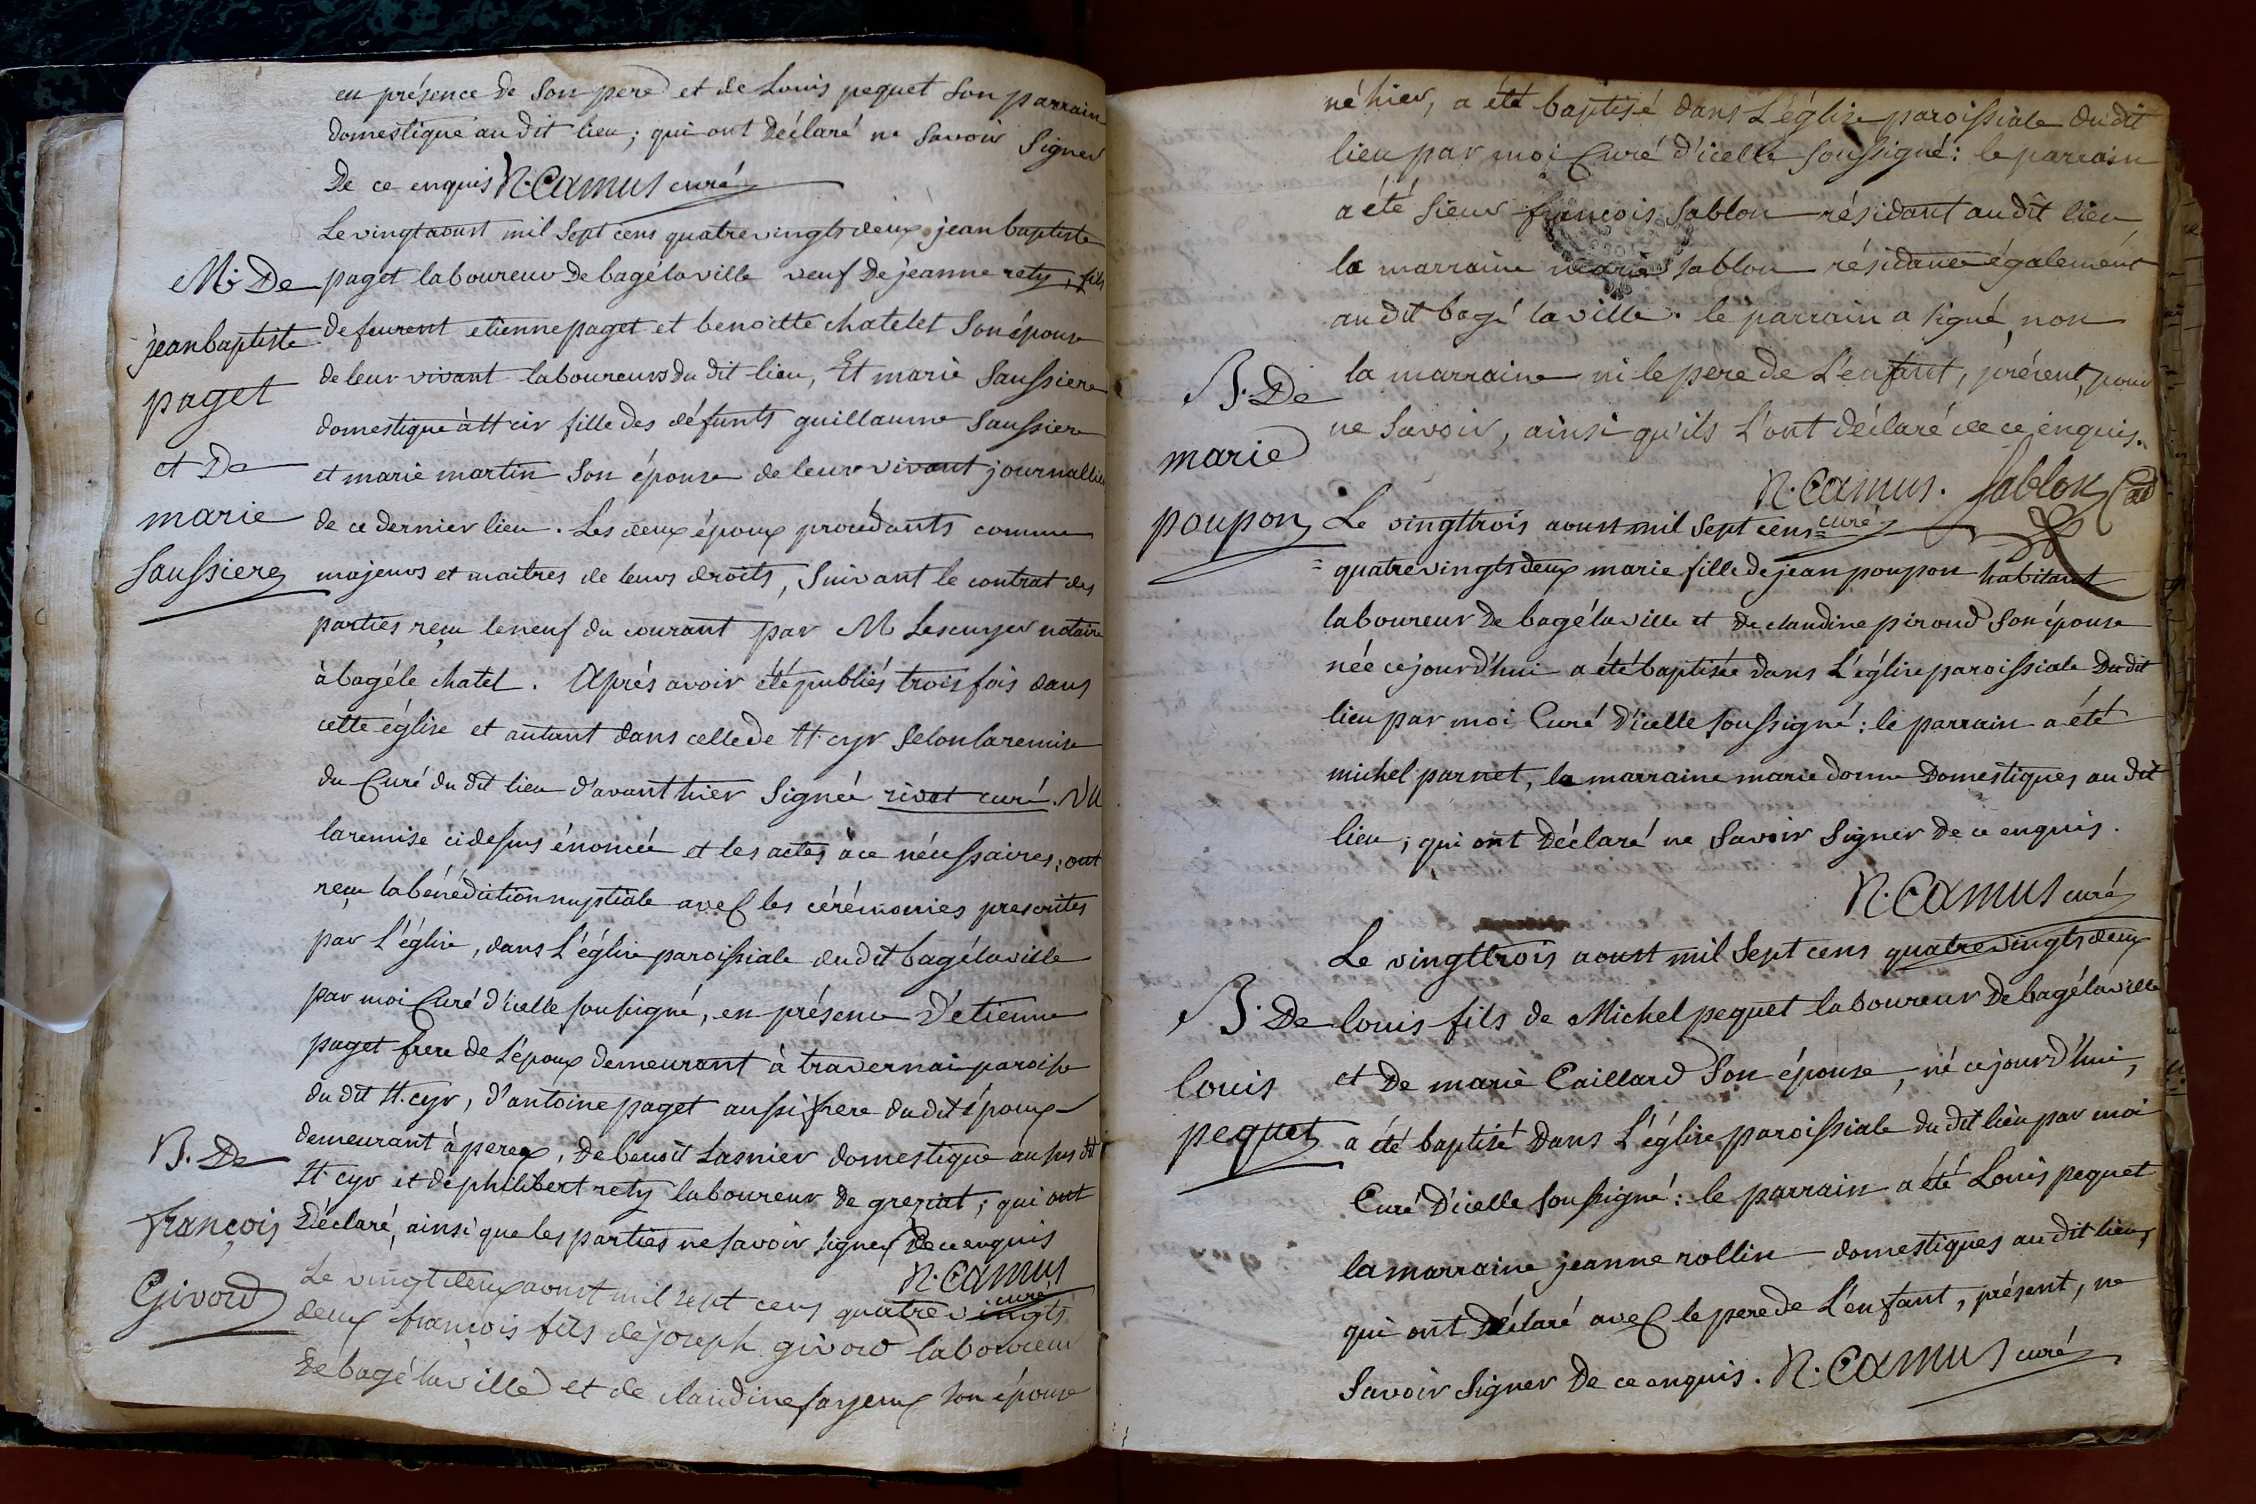 en présence de son pere et de Louis pequet son parrain
domestique au dit lieu; qui ont déclaré ne savoir signer
De ce enquis N. Camus curé
Le vingt aoust mil sept cens quatre vingts deux jean baptiste
M. De
paget laboureur De bagé la ville veuf De jeanne rety, fils
jean baptiste
de feurent etienne paget et benoitte chatelet son épouse
paget
de leur vivant laboureurs du dit lieu, Et marie Saussiere
domestique à St cir fille des défunts guillaume Saussiere
et De
et marie martin son épouse de leur vivant journalliers
marie
de ce dernier lieu. Les deux époux procédants comme
Saussiere
majeurs et maitres de leurs droits, suivant le contrat des
parties reçu le neuf du courant par M Lescuyer notaire
à bagé le chatel. Aprés avoir été publiés trois fois dans
cette église et autant dans celle de St. cyr selon la remise
du Curé du dit lieu d'avant hier signée rivat curé. Vu
la remise ci dessus énoncée et les actes à ce nécessaires, ont
reçu la bénédiction nuptiale avec les cérémonies prescrites
par L'église, dans L'église paroissiale du dit bagé la ville
par moi Curé d'icelle soussigné, en présence D'étienne
paget frere de l'époux demeurant à travernai paroisse
du dit St. cyr, d'antoine paget aussi frere du dit époux
demeurant à perex, de benoit Lasnier domestique au sus dt
B. De
St cyr et de philibert rety laboureur de greziat; qui ont
françois
Déclaré, ainsi que les parties ne savoir signer De ce enquis
N. Camus
curé
Givord
Le vingt deux aoust mil sept cens quatre vingts
deux françois fils de joseph givord laboureur
De bagé la ville et de claudine sarjeux son épouse
né hier, a été baptisé dans L'église paroissiale du dit
lieu par moi Curé d'icelle soussigné: le parrain
a été sieur françois Sablon résidant au dit lieu
la marraine marie Sablon résidance également
au dit bagé la ville. le parrain a signé non
la marraine ni le pere de L'enfant, présent, pour
ne savoir, ainsi qu'ils L'ont déclaré de ce enquis.
N. Camus. Sablon
curé
B. De
marie
poupon
Le vingt trois aoust mil sept cens =
= quatre vingts deux marie fille de jean poupon habitant
laboureur De bagé la ville et De claudine piroud son épouse
née ce jourd'hui a été baptisée dans L'église paroissiale Du dit
lieu par moi Curé D'icelle soussigné: le parrain a été
michel parnet, la marraine marie donne Domestiques au dit
lieu; qui ont Déclaré ne savoir signer De ce enquis.
N. Camus curé
Le vingt trois aoust mil sept cens quatre vingts deux
B. De
louis fils de Michel pequet laboureur De bagé la ville
louis
et De marie Caillard son épouse, né ce jourd'hui,
pequet
a été baptisé Dans L'église paroissiale du dit lieu par moi
Curé D'icelle soussigné: le parrain a été Louis pequet
la marraine jeanne rollin domestiques au dit lieu,
qui ont Déclaré avec le pere de L'enfant, présent, ne
savoir signer De ce enquis. N. Camus curé